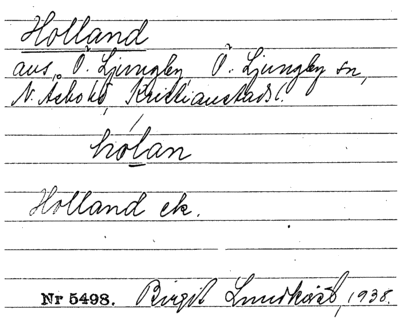 Holland
aus, Ö. Ljungby, Ö. Ljungby sn,
N. Åsbo hd, Kristianstads l.
hólan
Holland ek.
Nr 5498. Birgit Lundkvist, 1938.